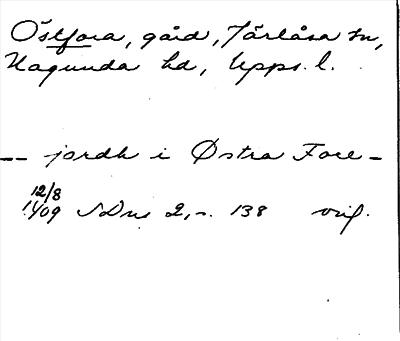 Östfora, gård, Järlåsa sn,
Hagunda hd, Upps. l.
-- jordh i Østra Fore -
12/8
1409 SDns 2, s. 138 orig.